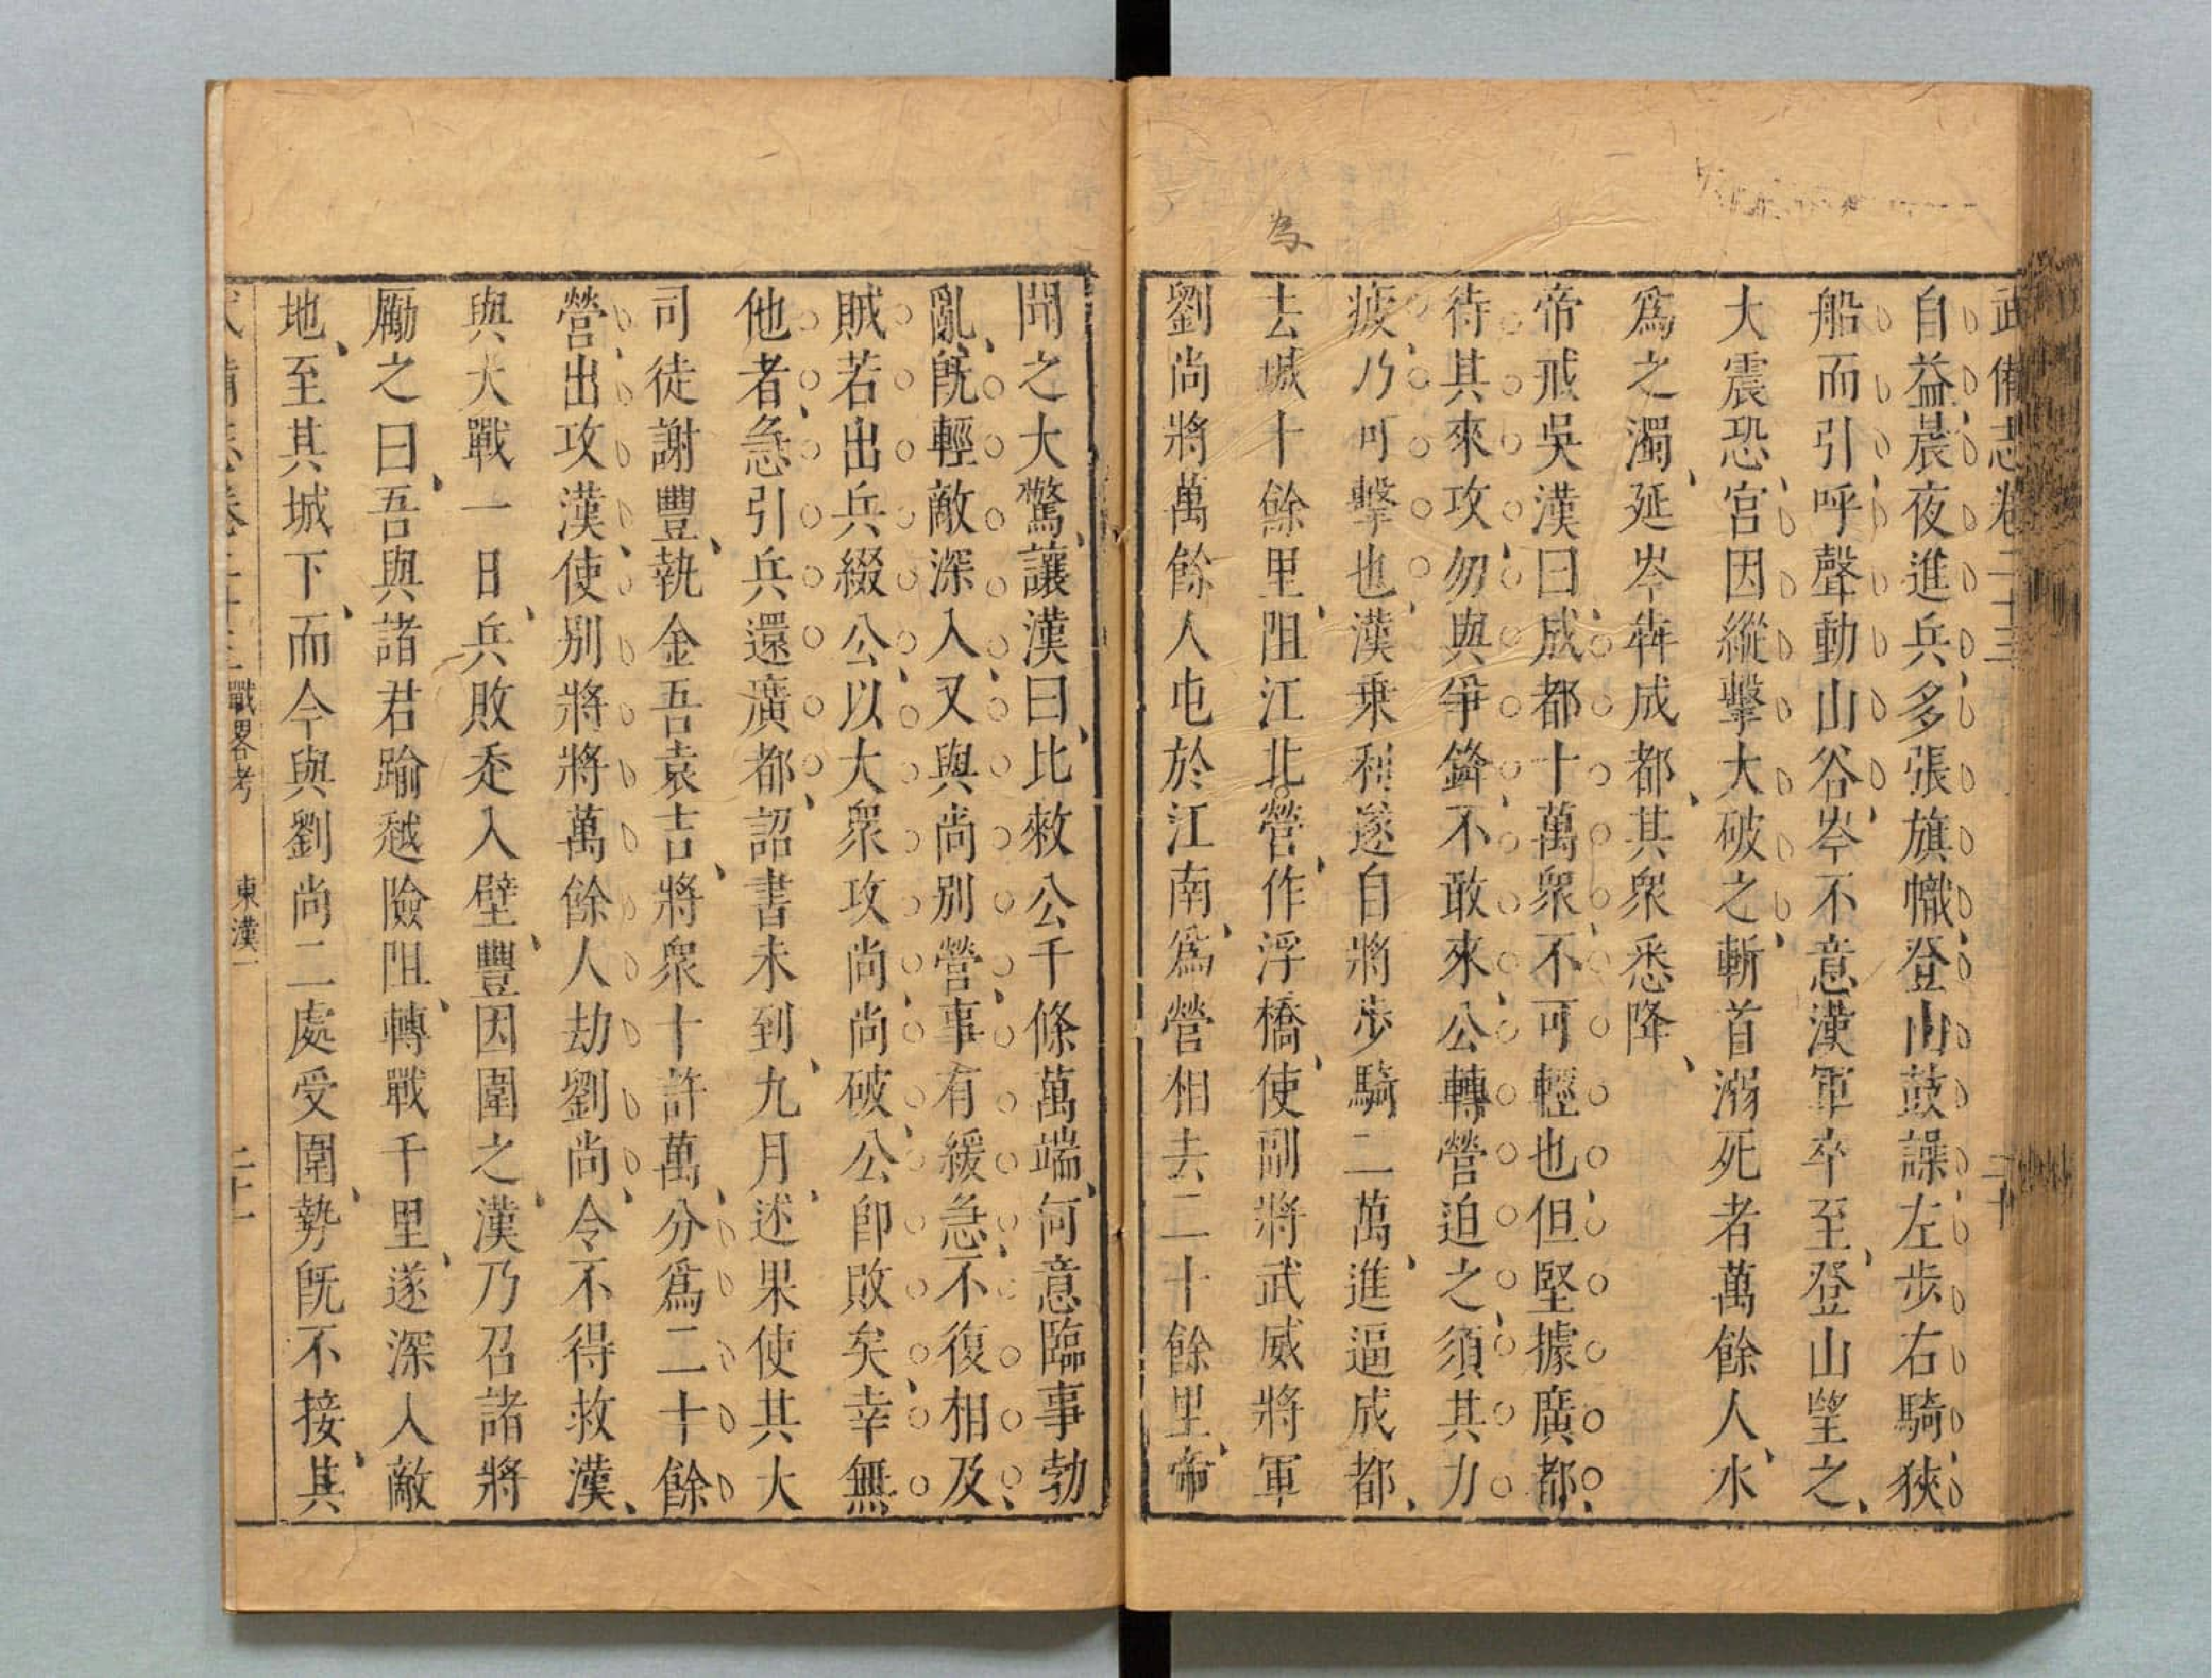 武備志卷二十三
二十
自益晨夜進兵多張旗幟登山鼓譟左步右騎挾
船而引呼聲動山谷岑不意漢軍卒至登山望之
大震恐宮因縱擊大破之斬首溺死者萬餘人水
爲之濁延岑犇成都其衆悉降
帝戒吳漢曰成都十萬衆不可輕也但堅據廣都
待其來攻勿與爭鋒不敢來公轉營迫之須其力
疲乃可擊也漢乗利遂自將步騎二萬進逼成都
為
去城十餘里阻江北營作浮橋使副將武威將軍
劉尚將萬餘人屯於江南爲營相去二十餘里帝
聞之大驚讓漢曰比敕公千條萬端何意臨事勃
亂旣輕敵深入又與尚別營事有緩急不復相及
賊若出兵綴公以大衆攻尚尚破公卽敗矣幸無
他者急引兵還廣都詔書未到九月述果使其大
司徒謝豐執金吾袁吉將衆十許萬分爲二十餘
營出攻漢使别將將萬餘人劫劉尚令不得救漢
與大戰一日兵敗走入壁豐因圍之漢乃召諸將
厲之曰吾與諸君踰越險阻轉戰千里遂深入敵
地至其城下而今與劉尚二處受圍勢旣不接其
武備志卷二十三 戰畧考 東漢一
二十一